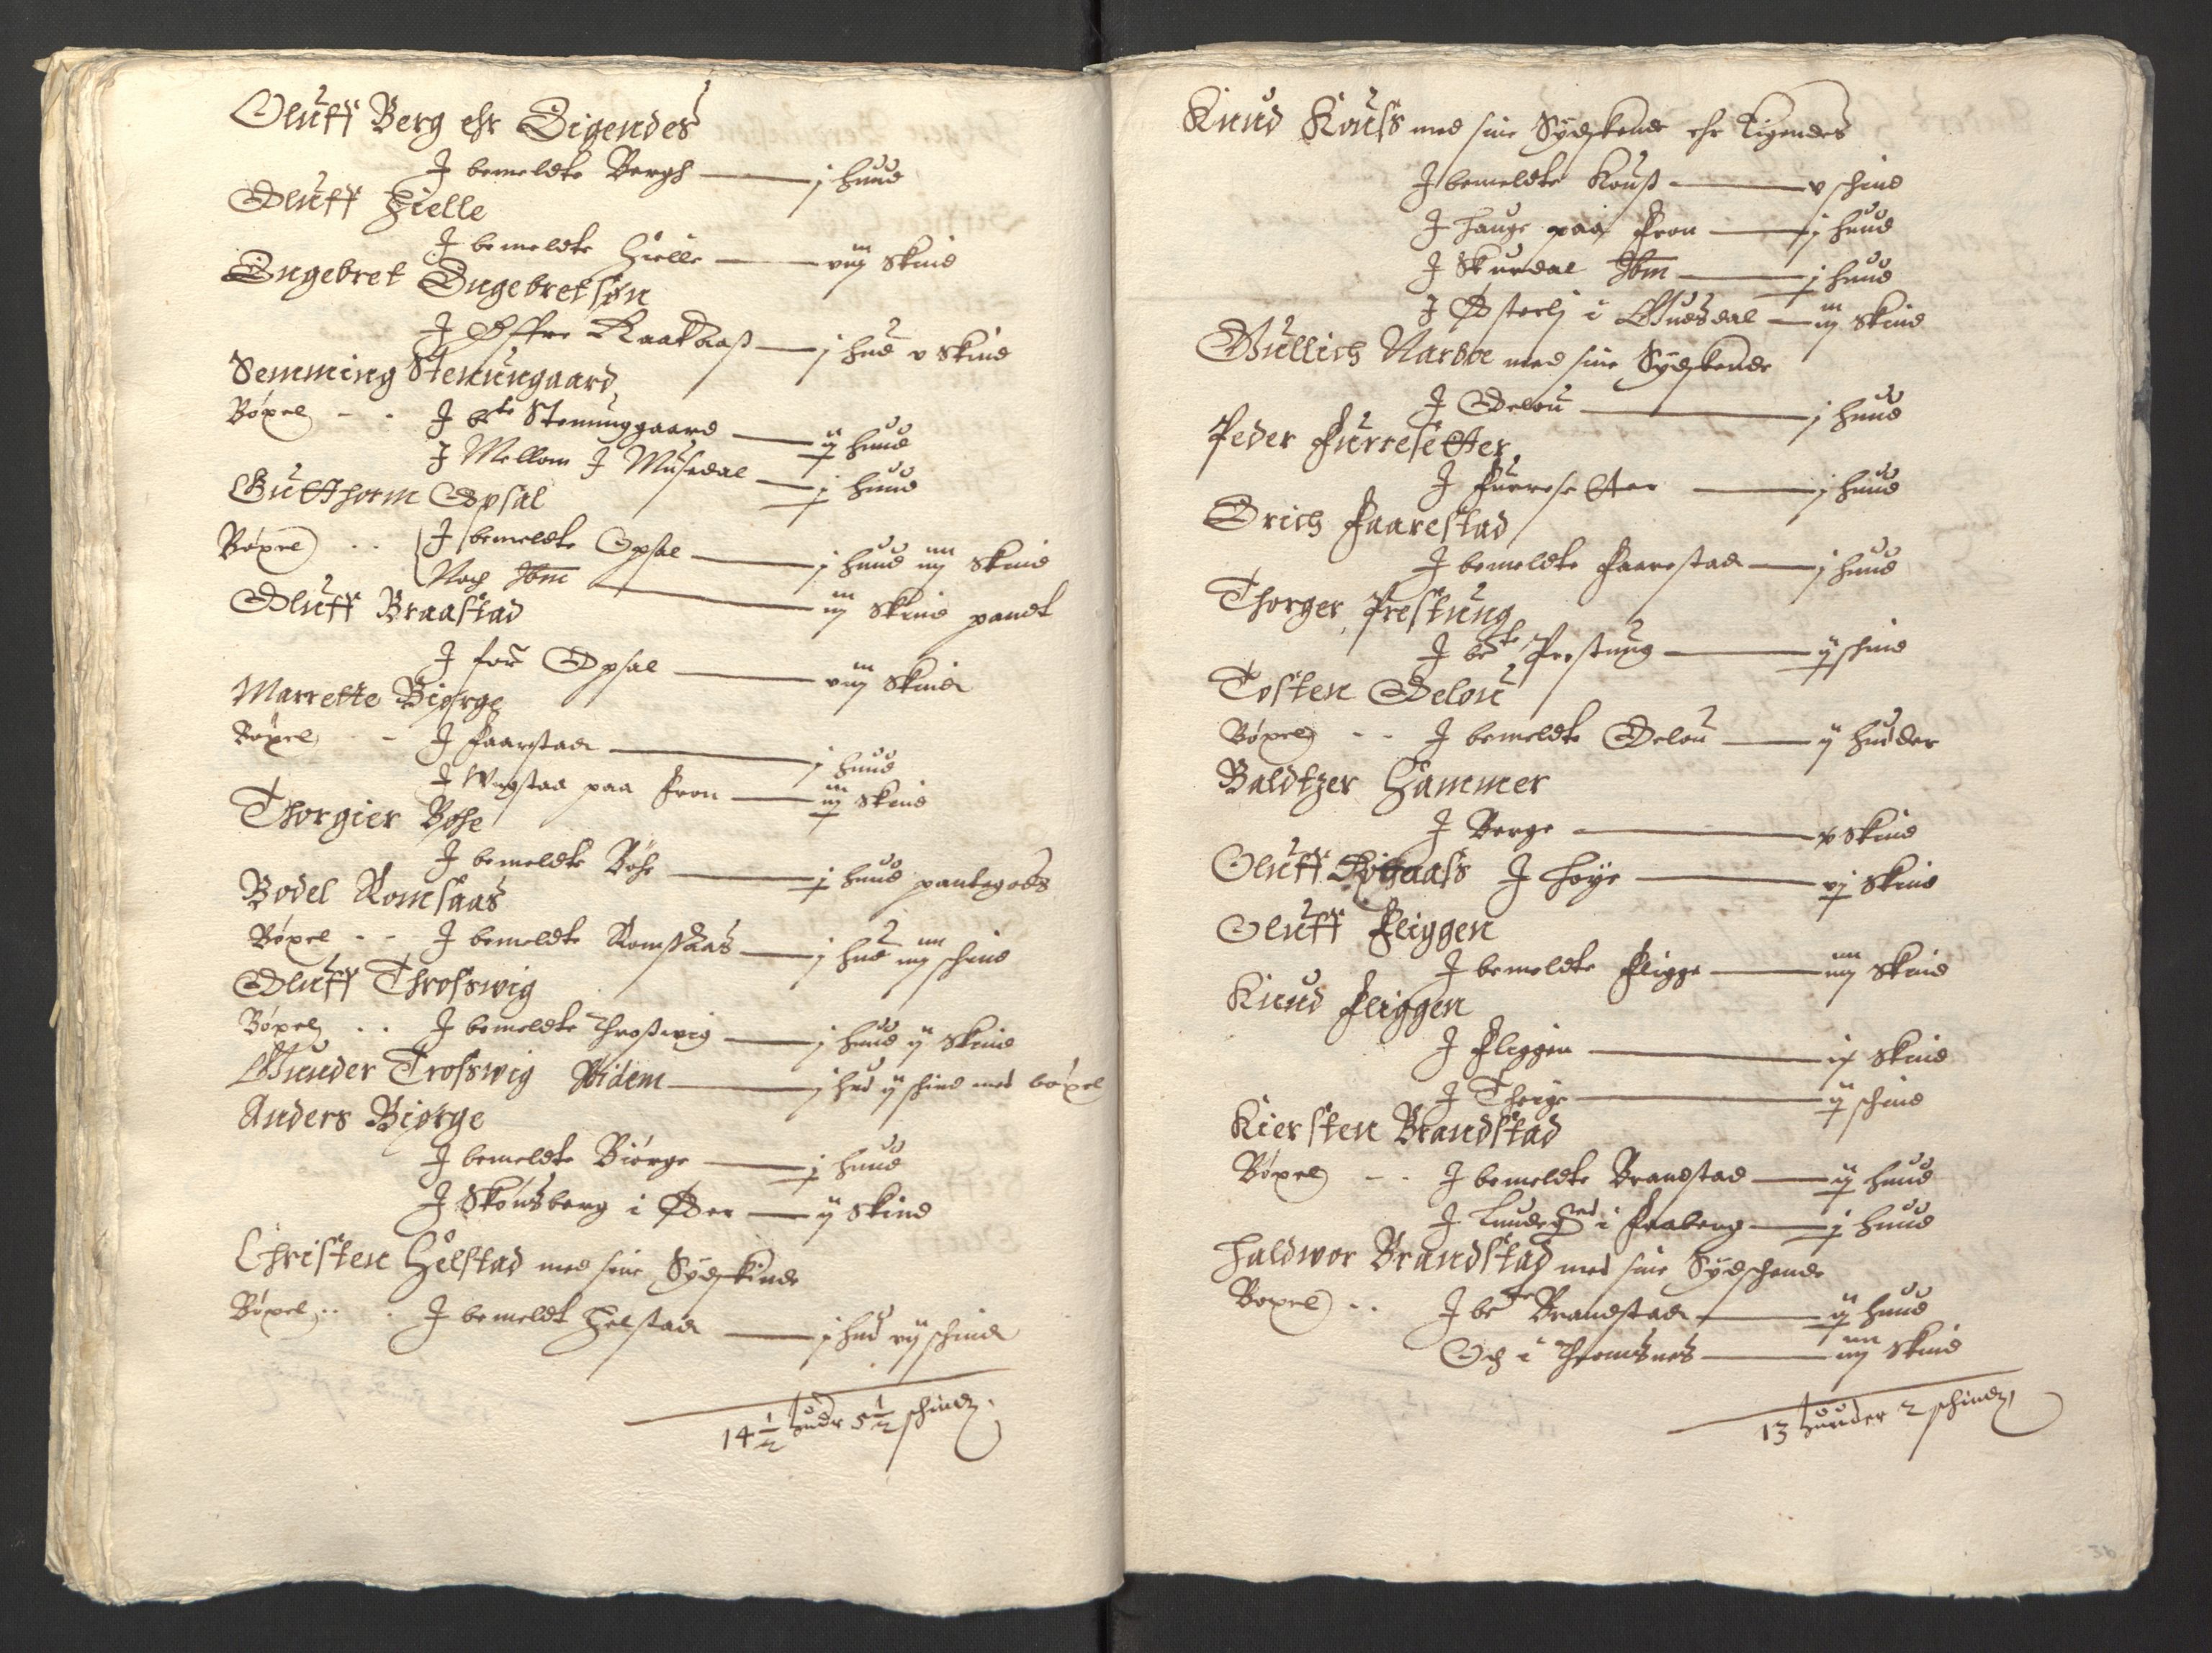 Oluff Berg ehr Eigendes
J bemeldte Bergh — j huud
Oluff Hielle
J bemeldte Hielle — viij Skind
Engebret Engebretsøn
J Øffre Kaataaß — j hud v Skind
Semming Stenungaard
Bøxel - - J bte Stenunggaard — ij huud
J Mellom J Musedal — j huud
Gutthorm Opsal
Bøxel - - J bemeldte Opsal — j huud iiij Skind
Noch Ibm — iij Skind pandt
Oluff Braastad
J for Opsal — viij Skind
Marrette Biørge
Bøxel - - J Faarstad — j huud
J Wigstaa paa Fron — iij Skind
Thorgier Bøhe
J bemeldte Bøhe — j huud pantegods
Bodel Romsaas
Bøxel - - J bemeldte Romsaas — j hud iiij schind
Oluff Throswig
Bøxel - - J bemeldte Throßwig — j huud ij Skind
Gunder Troswig Ibidem — j hud ij schind med bøxel
Anders Biørge
J bemeldte Biørge — j huud
J Skønsberg i Øer — ij Skind
Christen Helstad med sine Sydskinde
Bøxel - - J bemeldt Helstad — j hud vij schind
14 1/2 hudr 5 1/2 schind
Knud Kouss med sine Sydskende ehr Eigendes
J bemeldte Kouß — v schind
J Hauge paa Fron — j huud
J Skurdal Ibm — j huud
J Østerlj i Gudsdal — iij Skind
Gullich Narboe med sine Sydskende
J Delou — j huud
Peder Furresetter
J Furresetter — j huud
Erich Faarestad
J bemeldte Faarestad — j huud
Thorger Prestung
J bete Prestung — ij schind
Tosten Delou
Bøxel - - J bemeldte Delou — ij Hudder
Baldtzer Hammer
J Berge — v Skind
Oluff J Høye — vj Skind
Oluff Fliggen
J bemeldte Fligge — iiij Skind
Knud Fliggen
J Fliggen — ix Skind
J Theige — ij schind
Kiersten Brandstad
Bøxel - - J bemeldte Brandstad — ij huud
J Lundegrd i Faaberg — j huud
Haldwor Brandstad med sine Sydschende
Boxel - - J bete Brandstad — ij huud
Och i Thromsnes — iiij Skind
13 huuder 2 schind
36